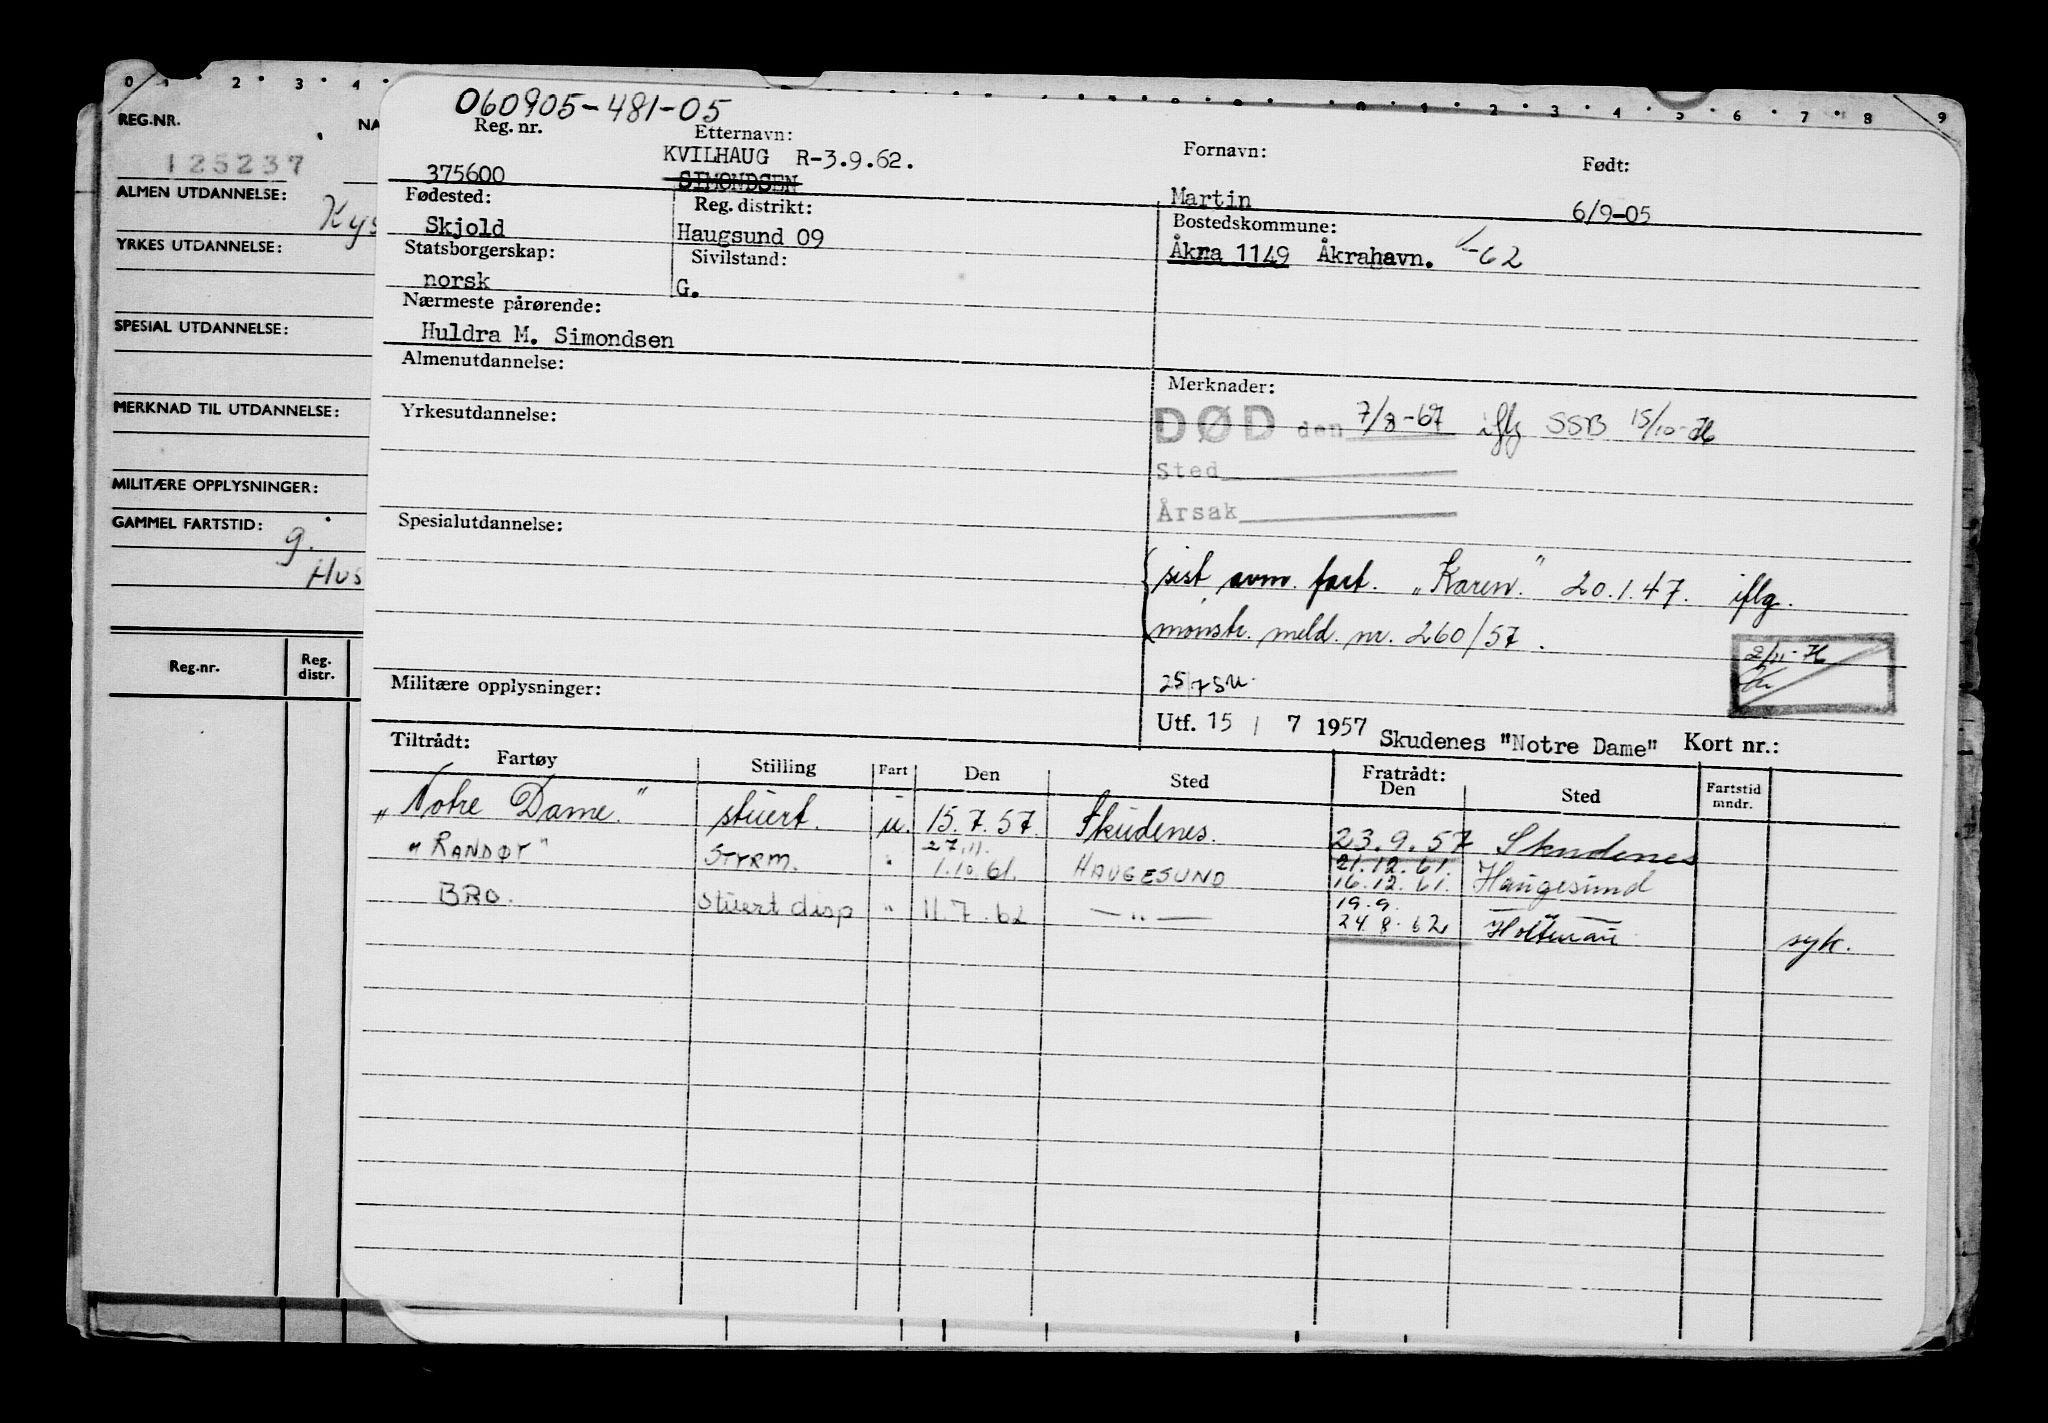 0 1 2 3 4
REG.NR. NA
125237
ALMEN UTDANNELSE:
YRKES UTDANNELSE:
SPESIAL UTDANNELSE:
MERKNAD TIL UTDANNELSE:
MILITÆRE OPPLYSNINGER:
GAMMEL FARTSTID:
g.
Hus
Reg.nr. Reg. distr.
0 1 2 3 4 5 6 7 8 9
060905-481-05
Reg. nr. Etternavn: Fornavn: Født:
KVILHAUG R-3.9.62.
375600 SIMONDSEN Martin 6/9-05
Fødested: Reg. distrikt: Bostedskommune:
Skjold Haugsund 09 Åkra 1149 Åkrahavn. -62
Statsborgerskap: Sivilstand:
norsk G.
Nærmeste pårørende:
Huldra M. Simondsen
Almenutdannelse: Merknader:
DØD den 7/8-67 iflg SSB 15/10-76
Yrkesutdannelse:
Sted
Årsak
Spesialutdannelse:
sist avm. fart. "Karen." 20.1.47. iflg.
mønstr. meld. nr. 260/57.
2/11-76
Militære opplysninger:
Utf. 15 / 7 1957 Skudenes "Notre Dame" Kort nr.:
Tiltrådt: Fratrådt:
Fartøy Stilling Fart Den Sted Den Sted Fartstid mndr.
"Notre Dame." stuert. u. 15.7.57. Skudenes. 23.9.57 Skudenes
27.11. 21.12.61.
"RANDØY" STYRM. " 1.10.61. HAUGESUND 16.12.61. Haugesund
19.9.
BRO. Stuert disp " 11.7.62 — " — 24.8.62 Holtenau syk.